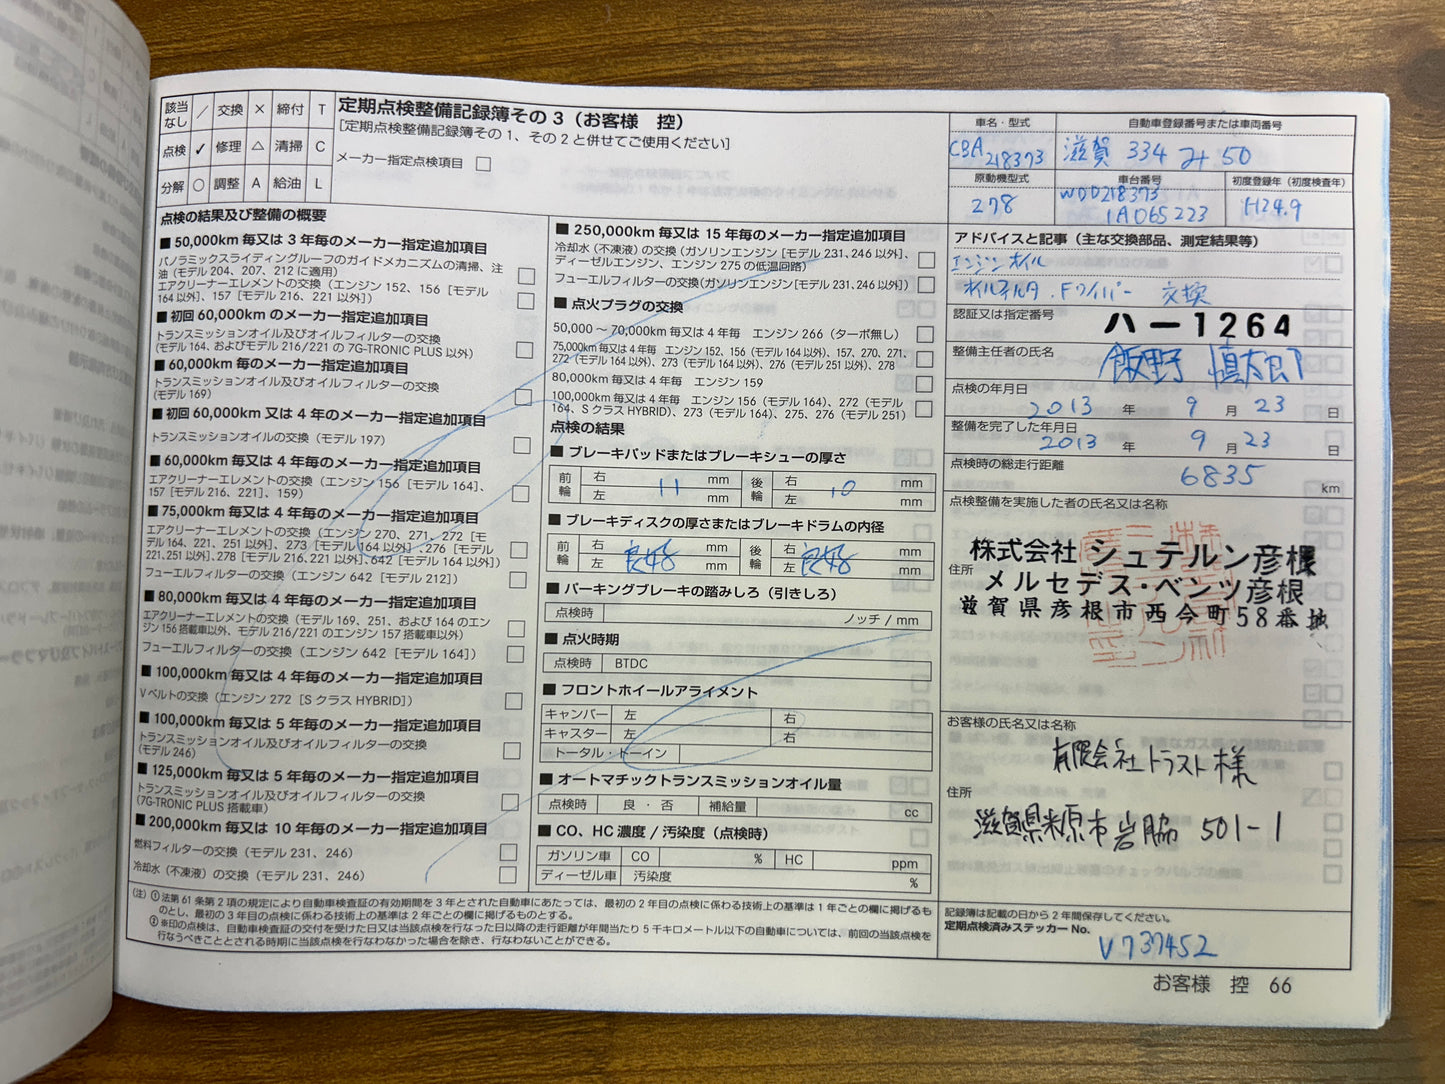 該当なし ／ 交換 × 締付 T
点検 ✓ 修理 △ 清掃 C
分解 ○ 調整 A 給油 L
定期点検整備記録簿その 3（お客様　控）
[定期点検整備記録簿その 1、その 2 と併せてご使用ください]
メーカー指定点検項目 □
点検の結果及び整備の概要
■ 50,000km 毎又は 3 年毎のメーカー指定追加項目
パノラミックスライディングルーフのガイドメカニズムの清掃、注
油（モデル 204、207、212 に適用） □
エアクリーナーエレメントの交換（エンジン 152、156［モデル
164 以外］、157［モデル 216、221 以外］） □
■ 初回 60,000km のメーカー指定追加項目
トランスミッションオイル及びオイルフィルターの交換
（モデル 164、およびモデル 216/221 の 7G-TRONIC PLUS 以外） □
■ 60,000km 毎のメーカー指定追加項目
トランスミッションオイル及びオイルフィルターの交換
（モデル 169） □
■ 初回 60,000km 又は 4 年毎のメーカー指定追加項目
トランスミッションオイルの交換（モデル 197） □
■ 60,000km 毎又は 4 年毎のメーカー指定追加項目
エアクリーナーエレメントの交換（エンジン 156［モデル 164］、
157［モデル 216、221］、159） □
■ 75,000km 毎又は 4 年毎のメーカー指定追加項目
エアクリーナーエレメントの交換（エンジン 270、271、272［モ
デル 164、221、251 以外］、273［モデル 164 以外］、276［モデル
221、251 以外］、278［モデル 216、221 以外］、642［モデル 164 以外］） □
フューエルフィルターの交換（エンジン 642［モデル 212］） □
■ 80,000km 毎又は 4 年毎のメーカー指定追加項目
エアクリーナーエレメントの交換（モデル 169、251、および 164 のエン
ジン 156 搭載車以外、モデル 216/221 のエンジン 157 搭載車以外） □
フューエルフィルターの交換（エンジン 642［モデル 164］） □
■ 100,000km 毎又は 4 年毎のメーカー指定追加項目
V ベルトの交換（エンジン 272［S クラス HYBRID］） □
■ 100,000km 毎又は 5 年毎のメーカー指定追加項目
トランスミッションオイル及びオイルフィルターの交換
（モデル 246） □
■ 125,000km 毎又は 5 年毎のメーカー指定追加項目
トランスミッションオイル及びオイルフィルターの交換
（7G-TRONIC PLUS 搭載車） □
■ 200,000km 毎又は 10 年毎のメーカー指定追加項目
燃料フィルターの交換（モデル 231、246） □
冷却水（不凍液）の交換（モデル 231、246） □
■ 250,000km 毎又は 15 年毎のメーカー指定追加項目
冷却水（不凍液）の交換（ガソリンエンジン［モデル 231、246 以外］、
ディーゼルエンジン、エンジン 275 の低温回路） □
フューエルフィルターの交換（ガソリンエンジン［モデル 231、246 以外］） □
■ 点火プラグの交換
50,000 ～ 70,000km 毎又は 4 年毎　エンジン 266（ターボ無し） □
75,000km 毎又は 4 年毎　エンジン 152、156（モデル 164 以外）、157、270、271、
272（モデル 164 以外）、273（モデル 164 以外）、276（モデル 251 以外）、278 □
80,000km 毎又は 4 年毎　エンジン 159 □
100,000km 毎又は 4 年毎　エンジン 156（モデル 164）、272（モデル
164、S クラス HYBRID）、273（モデル 164）、275、276（モデル 251） □
点検の結果
■ ブレーキパッドまたはブレーキシューの厚さ
前輪 右 左 11 mm mm 後輪 右 左 10 mm mm
■ ブレーキディスクの厚さまたはブレーキドラムの内径
前輪 右 左 良好 mm mm 後輪 右 左 良好 mm mm
■ パーキングブレーキの踏みしろ（引きしろ）
点検時 ノッチ / mm
■ 点火時期
点検時 BTDC
■ フロントホイールアライメント
キャンバー 左 右
キャスター 左 右
トータル・トーイン
■ オートマチックトランスミッションオイル量
点検時 良 ・ 否 補給量 cc
■ CO、HC 濃度 / 汚染度（点検時）
ガソリン車 CO % HC ppm
ディーゼル車 汚染度 %
（注）① 法第 61 条第 2 項の規定により自動車検査証の有効期間を 3 年とされた自動車にあたっては、最初の 2 年目の点検に係わる技術上の基準は 1 年ごとの欄に掲げるも
のとし、最初の 3 年目の点検に係わる技術上の基準は 2 年ごとの欄に掲げるものとする。
② ※印の点検は、自動車検査証の交付を受けた日又は当該点検を行なった日以降の走行距離が年間当たり 5 千キロメートル以下の自動車については、前回の当該点検を
行なうべきこととされる時期に当該点検を行なわなかった場合を除き、行なわないことができる。
車名・型式 自動車登録番号または車両番号
CBA 218373 滋賀 334 み 50
原動機型式 車台番号 初度登録年（初度検査年）
278 WDD218373 1A065223 H24.9
アドバイスと記事（主な交換部品、測定結果等）
エンジンオイル
オイルフィルタ、Fワイパー　交換
認証又は指定番号 ハー1264
整備主任者の氏名 飯野 慎太郎
点検の年月日
2013 年 9 月 23 日
整備を完了した年月日
2013 年 9 月 23 日
点検時の総走行距離 6835 km
点検整備を実施した者の氏名又は名称
株式会社 シュテルン彦根
住所
メルセデス・ベンツ彦根
滋賀県彦根市西今町58番地
お客様の氏名又は名称
有限会社トラスト様
住所
滋賀県米原市岩脇 501-1
記録簿は記載の日から 2 年間保存してください。
定期点検済みステッカー No.
V737452
お客様　控　66